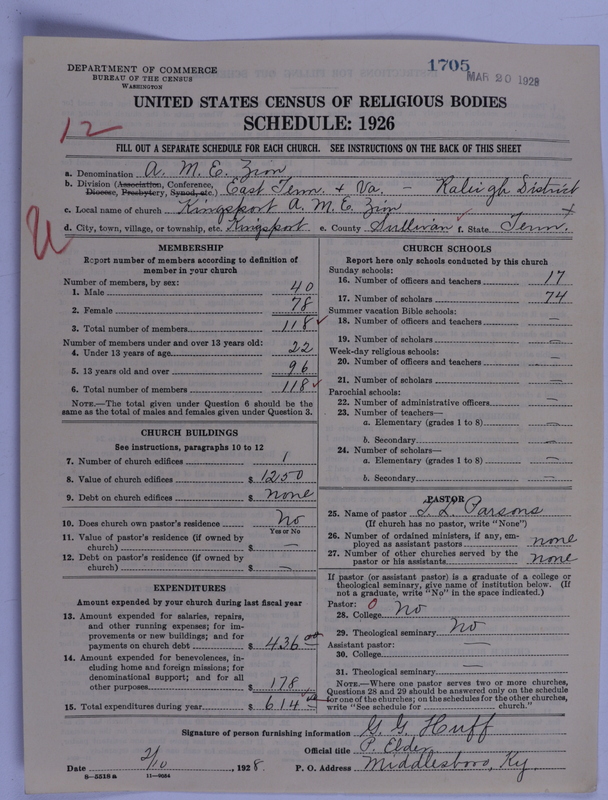 DEPARTMENT OF COMMERCE
BUREAU OF THE CENSUS
WASHINGTON
1705
MAR 20 1928
UNITED STATES CENSUS OF RELIGIOUS BODIES
SCHEDULE: 1926
12
FILL OUT A SEPARATE SCHEDULE FOR EACH CHURCH. SEE INSTRUCTIONS ON THE BACK OF THIS SHEET
a. Denomination A. M. E. Zion
b. Division (Association, Conference, Diocese, Presbytery, Synod, etc.) East Tenn. + Va. - Raleigh District
c. Local name of church Kingsport A. M. E. Zion
d. City, town, village, or township, etc. Kingsport e. County Sullivan f. State Tenn.
MEMBERSHIP
Report number of members according to definition of
member in your church
Number of members, by sex:
1. Male 40
2. Female 78
3. Total number of members 118
Number of members under and over 13 years old:
4. Under 13 years of age 22
5. 13 years old and over 96
6. Total number of members 118
NOTE.—The total given under Question 6 should be the
same as the total of males and females given under Question 3.
CHURCH BUILDINGS
See instructions, paragraphs 10 to 12
7. Number of church edifices 1
8. Value of church edifices $ 1250
9. Debt on church edifices $ none
10. Does church own pastor's residence No
Yes or No
11. Value of pastor's residence (if owned by
church) $ —
12. Debt on pastor's residence (if owned by
church) $ —
EXPENDITURES
Amount expended by your church during last fiscal year
13. Amount expended for salaries, repairs,
and other running expenses; for im-
provements or new buildings; and for
payments on church debt $ 436 00
14. Amount expended for benevolences,
including home and foreign missions; for
denominational support; and for all
other purposes $ 178
15. Total expenditures during year $ 614 00
CHURCH SCHOOLS
Report here only schools conducted by this church
Sunday schools:
16. Number of officers and teachers 17
17. Number of scholars 74
Summer vacation Bible schools:
18. Number of officers and teachers —
19. Number of scholars —
Week-day religious schools:
20. Number of officers and teachers —
21. Number of scholars —
Parochial schools:
22. Number of administrative officers —
23. Number of teachers—
a. Elementary (grades 1 to 8) —
b. Secondary —
24. Number of scholars—
a. Elementary (grades 1 to 8) —
b. Secondary —
PASTOR
25. Name of pastor Parsons
(If church has no pastor, write "None")
26. Number of ordained ministers, if any, em-
ployed as assistant pastors none
27. Number of other churches served by the
pastor or his assistants none
If pastor (or assistant pastor) is a graduate of a college or
theological seminary, give name of institution below. (If
not a graduate, write "No" in the space indicated.)
Pastor: 0
28. College No
29. Theological seminary No
Assistant pastor:
30. College —
31. Theological seminary —
NOTE.—Where one pastor serves two or more churches,
Questions 28 and 29 should be answered only on the schedule
for one of the churches; on the schedules for the other churches,
write "See schedule for church."
Signature of person furnishing information G. G. Huff
Official title P. Elder
Date 2/10, 1928. P. O. Address Middlesboro, Ky.
8-5518 a 11-9084